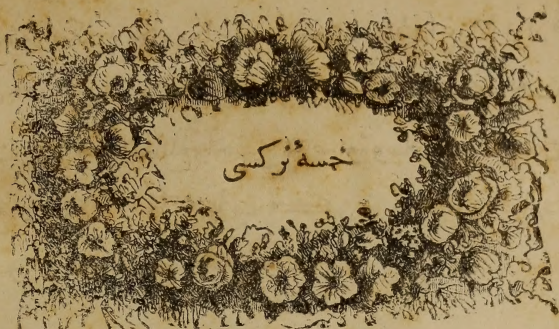 خمسهٔ نركسی